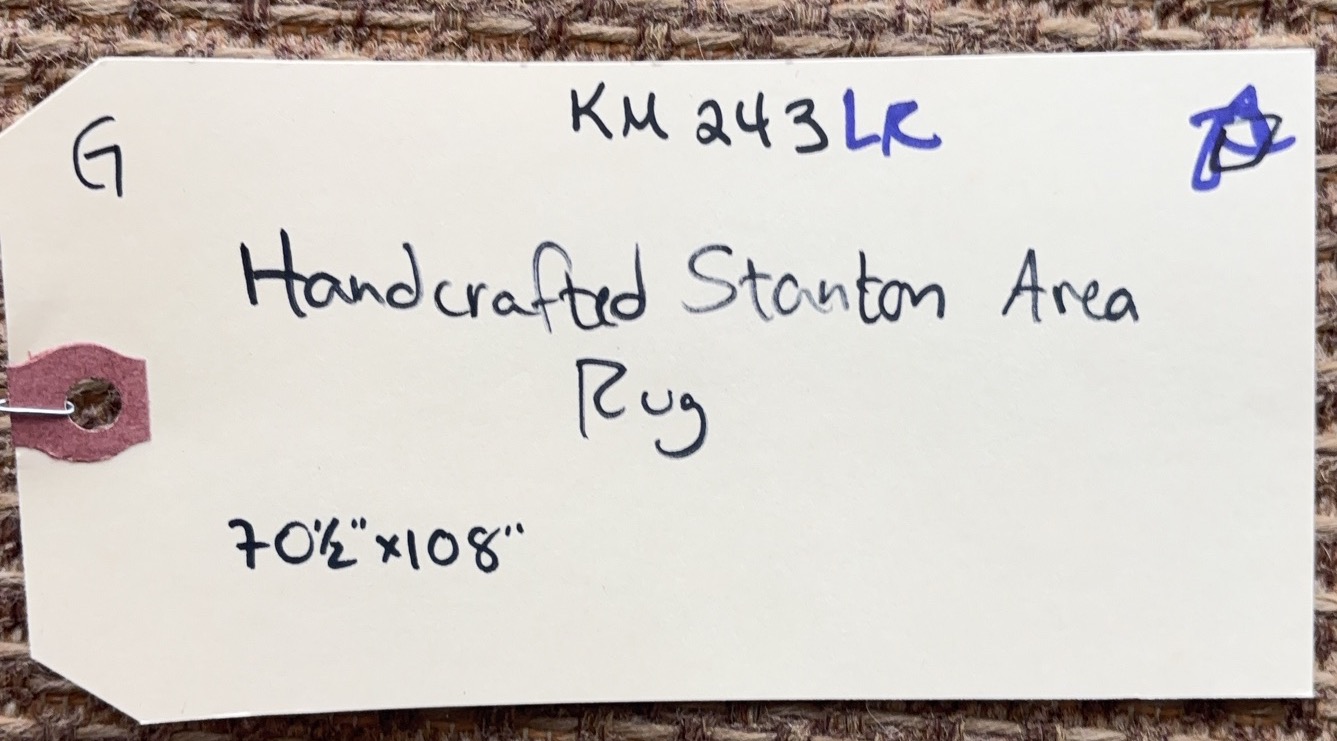 G
KM 243LR
Handcrafted Stanton Area
Rug
70½" x 108"